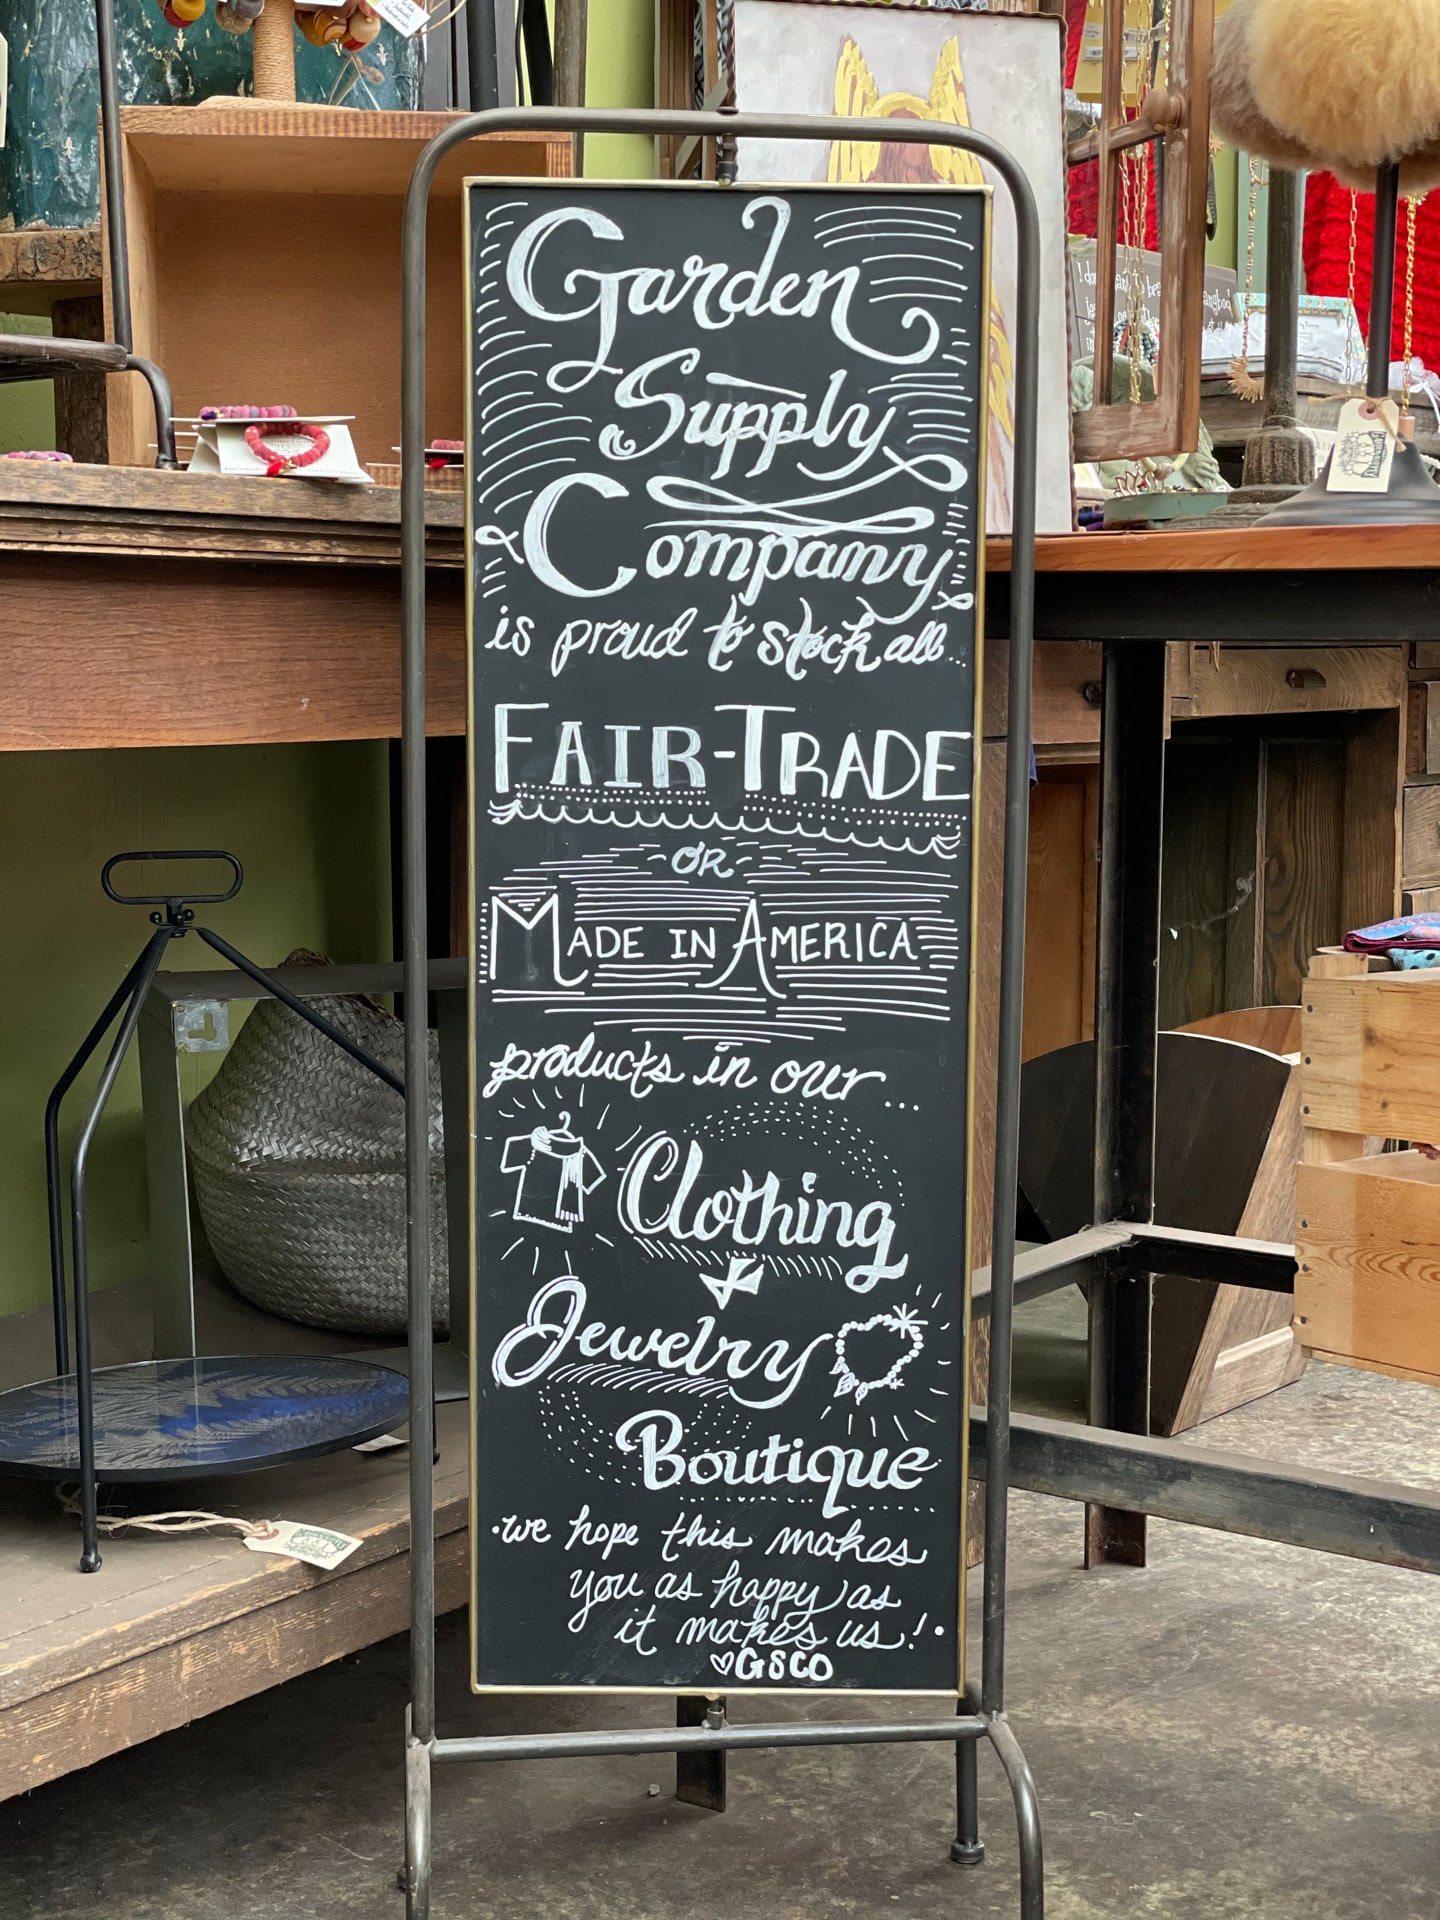 Garden
Supply
Company
is proud to stock all...
FAIR-TRADE
OR
MADE IN AMERICA
products in our...
Clothing
&
Jewelry
Boutique
·we hope this makes
you as happy as
it makes us!·
♡GSCO